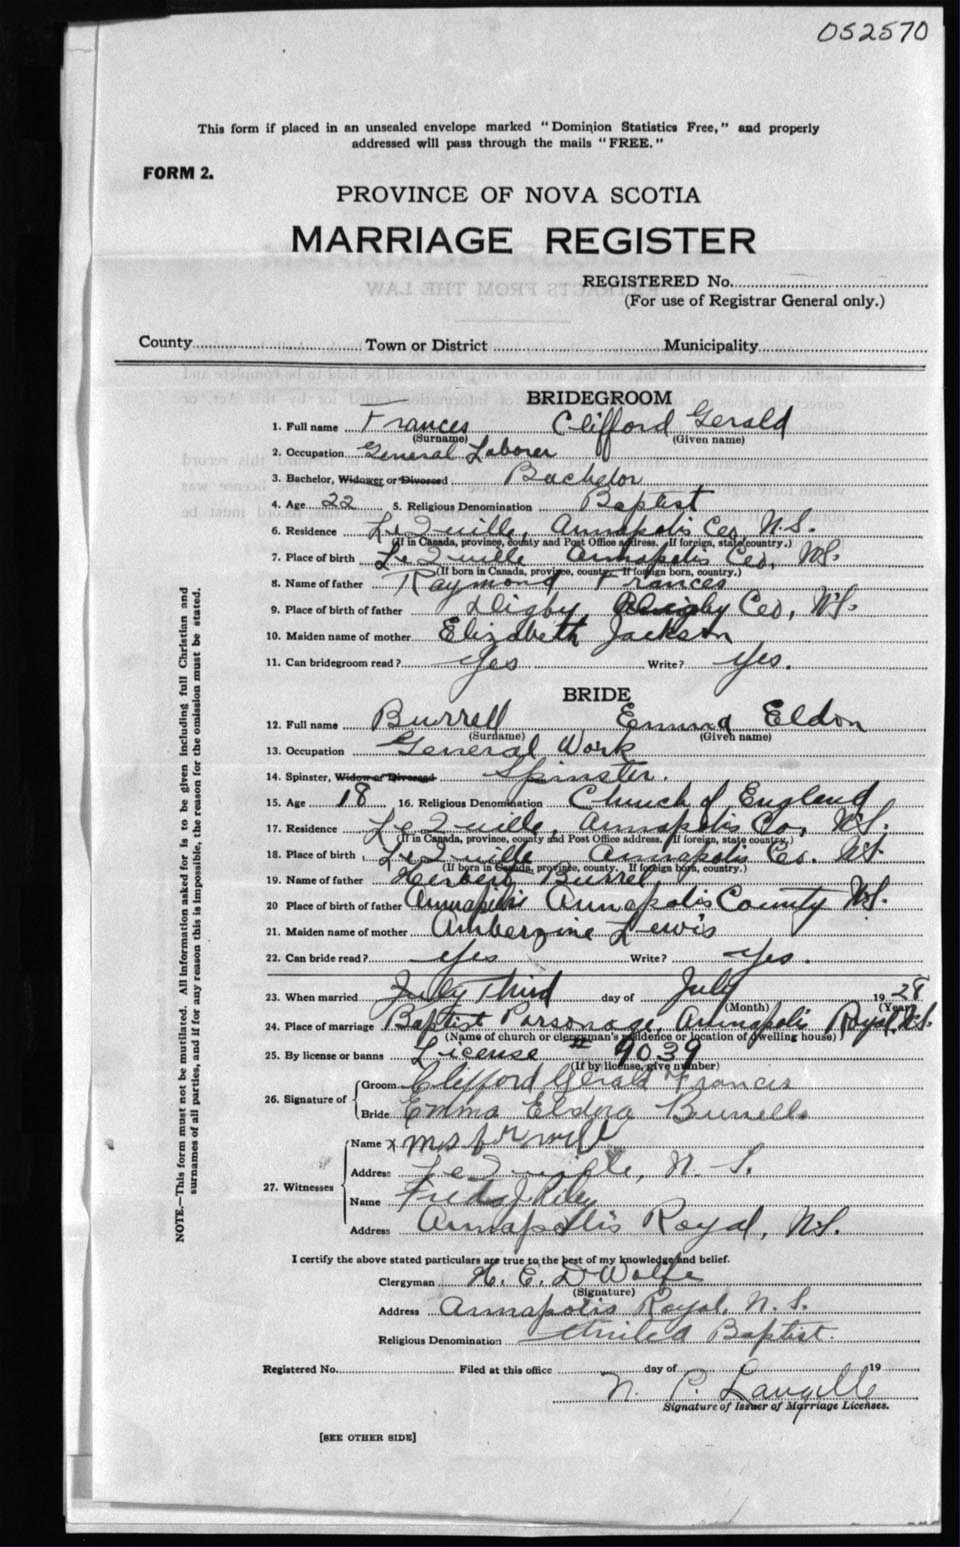 052570
This form if placed in an unsealed envelope marked "Dominion Statistics Free," and properly
addressed will pass through the mails "FREE."
FORM 2.
PROVINCE OF NOVA SCOTIA
MARRIAGE REGISTER
REGISTERED No.
(For use of Registrar General only.)
County Town or District Municipality
BRIDEGROOM
1. Full name Frances Clifford Gerald
(Surname) (Given name)
2. Occupation General Laborer
3. Bachelor, Widower or Divorced Bachelor
4. Age 22 5. Religious Denomination Baptist
6. Residence LeQuille, Annapolis Co, N.S.
(If in Canada, province, county and Post Office address. If foreign, state country.)
7. Place of birth LeQuille Annapolis Co, NS.
(If born in Canada, province, county. If foreign born, country.)
8. Name of father Raymond Frances
9. Place of birth of father Digby, Digby Co, N.S.
10. Maiden name of mother Elizabeth Jackson
11. Can bridegroom read? Yes Write? Yes.
BRIDE
12. Full name Burrell Emma Eldon
(Surname) (Given name)
13. Occupation General Work
14. Spinster, Widow or Divorced Spinster.
15. Age 18 16. Religious Denomination Church of England
17. Residence LeQuille, Annapolis Co, N.S.
(If in Canada, province, county and Post Office address. If foreign, state country.)
18. Place of birth LeQuille Annapolis Co. NS
(If born in Canada, province, county. If foreign born, country.)
19. Name of father Herbert Burrell
20 Place of birth of father Annapolis Annapolis County N.S.
21. Maiden name of mother Amberzine Lewis
22. Can bride read? Yes Write? Yes.
23. When married July Third day of July 19 28
(Month) (Year)
24. Place of marriage Baptist Parsonage, Annapolis Royal, N.S.
(Name of church or clergyman's residence or location of dwelling house)
25. By license or banns License # 9039
(If by license, give number)
26. Signature of
Groom Clifford Gerald Francis
Bride Emma Eldora Burrell
27. Witnesses
Name x Mrs
Address LeQuille, N. S.
Name
Address Annapolis Royal, N.S.
I certify the above stated particulars are true to the best of my knowledge and belief.
Clergyman H. E. DeWolfe
(Signature)
Address Annapolis Royal, N. S.
Religious Denomination United Baptist.
Registered No. Filed at this office day of 19
N. P. Langille
Signature of Issuer of Marriage Licenses.
[SEE OTHER SIDE]
NOTE.—This form must not be mutilated. All information asked for is to be given including full Christian and
surnames of all parties, and if for any reason this is impossible, the reason for the omission must be stated.